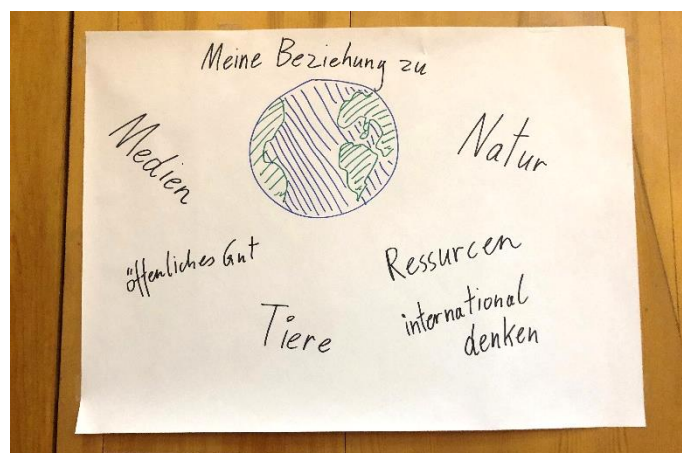 Meine Beziehung zu
Medien
Natur
öffenliches Gut
Ressurcen
Tiere
international
denken